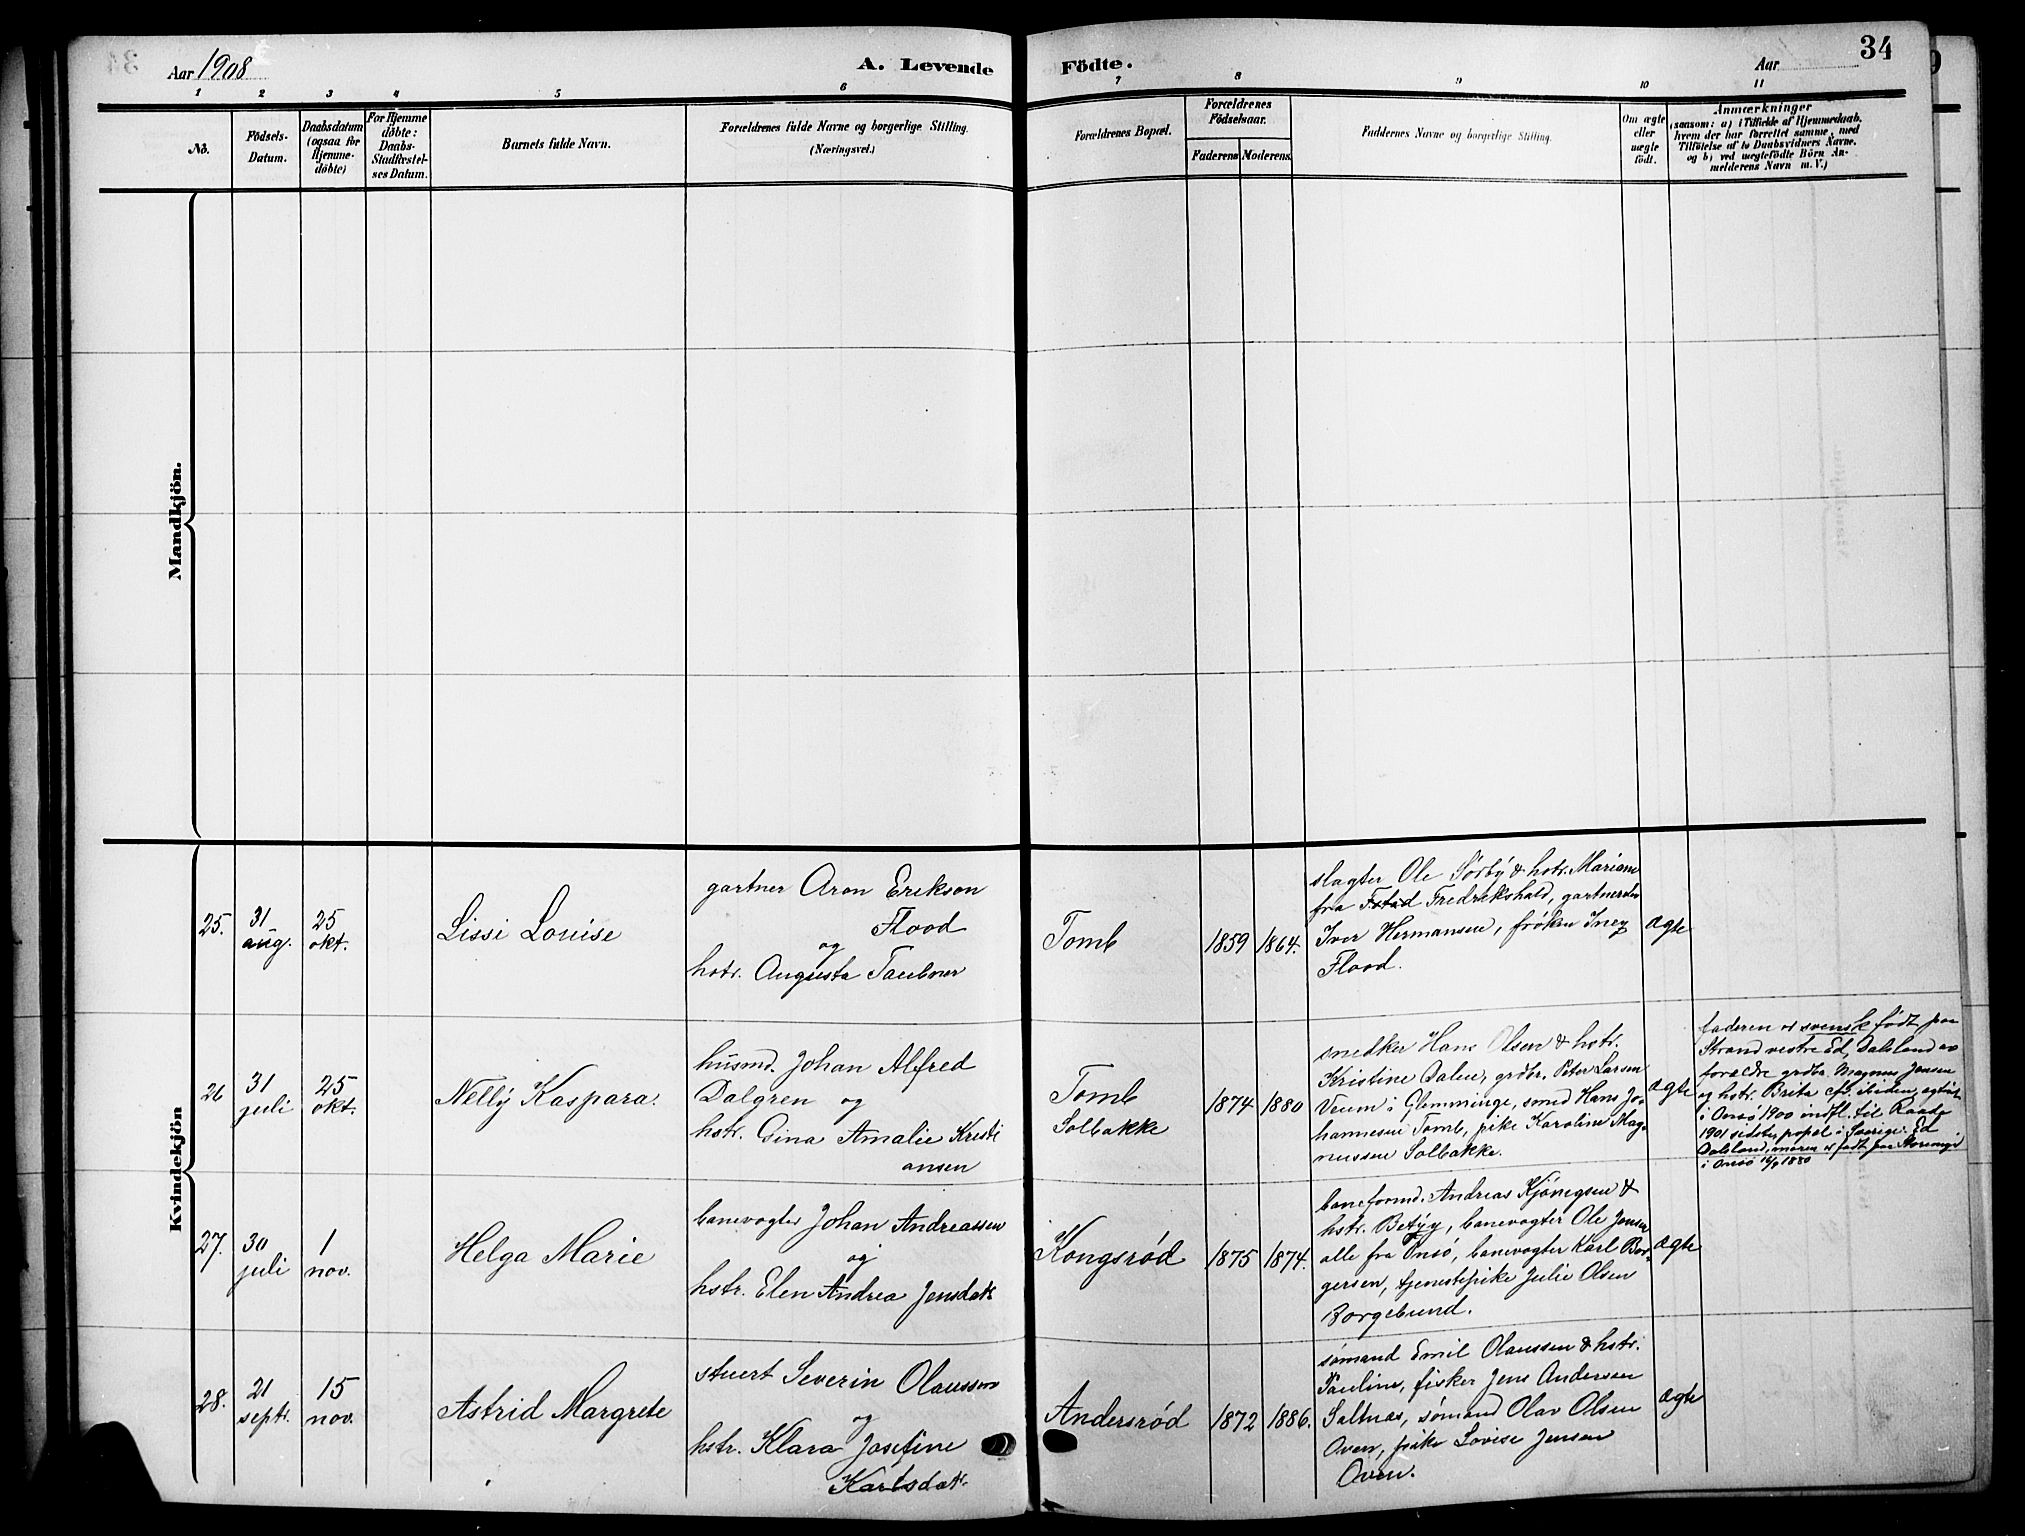 Aar 1908
A. Levende
Födte.
Aar
34
1 2 3 4 5 6 7 8 9 10 11
No.
Födsels-Datum.
Daabsdatum (ogsaa for Hjemme-döbte)
For Hjemme döbte: Daabs-Stadfæstelses Datum.
Barnets fulde Navn.
Forældrenes fulde Navne og borgerlige Stilling.
(Næringsvei.)
Forældrenes Bopæl.
Forældrenes Födselsaar.
Faderens Moderens
Faddernes Navne og borgerlige Stilling.
Om ægte eller uægte født.
Anmærkninger
(saasom: a) i Tilfælde af Hjemmedaab,
hvem der har forrettet samme, med
Tilföielse af to Daabsvidners Navne.
og b) ved uægtefödte Börn An-
melderens Navn m. V.)
Mandkjön.
Kvindekjön
25.
31 aug.
25 okt.
Lissi Louise
gartner Aron Erikson
Flood
og
hstr. Augusta Taubner
Tomb
1859 1864.
slagter Ole Sørby & hstr. Mariane
fra Fstad Fredrikshald, gartner
Iver Hermansen, frøken Inez
Flood.
ægte
26
31 juli
25 okt.
Nelly Kaspara.
husmd. Johan Alfred
Dalgren og
hstr. Gina Amalie Kristi
ansen
Tomb
Solbakke
1874 1880
snedker Hans Olsen & hstr.
Kristine Dalen, grdbr. Peter Larsen
Veum i Glemminge, smed Hans Jo-
hannesen Tomb, pike Karoline Mag-
nussen Solbakke.
ægte
faderen er svensk født paa
Strand vestre Ed, Dalsland av
forældre grdbr. Magnus Jensen
og hstr. Brita ibiden, egtet
i Onsø 1900 indfl. til Raade
1901 sidste bopæl i Sverige: Ed
Dalsland, moren er født paa
i Onsø 1880
27.
30 juli
1 nov.
Helga Marie
banevogter Johan Andreassen
og
hstr. Elen Andrea Jensdatr
Kongsrød
1875 1874.
baneformd. Andreas Kjønigsen &
hstr. Betzy, banevogter Ole Jensen
alle fra Onsø, banevogter Karl Bor-
gersen, tjenestepike Julie Olsen
Borgebund.
ægte
28.
21 septr.
15 nov.
Astrid Margrete
stuert Severin Olaussen
og
hstr. Klara Josefine
Karlsdatr.
Andersrød
1872 1886.
sømand Emil Olaussen & hstr.
Pauline, fisker Jens Andersen
Saltnæs, sømand Olav Olsen
Oven, pike Lovise Jensen
Oven.
ægte